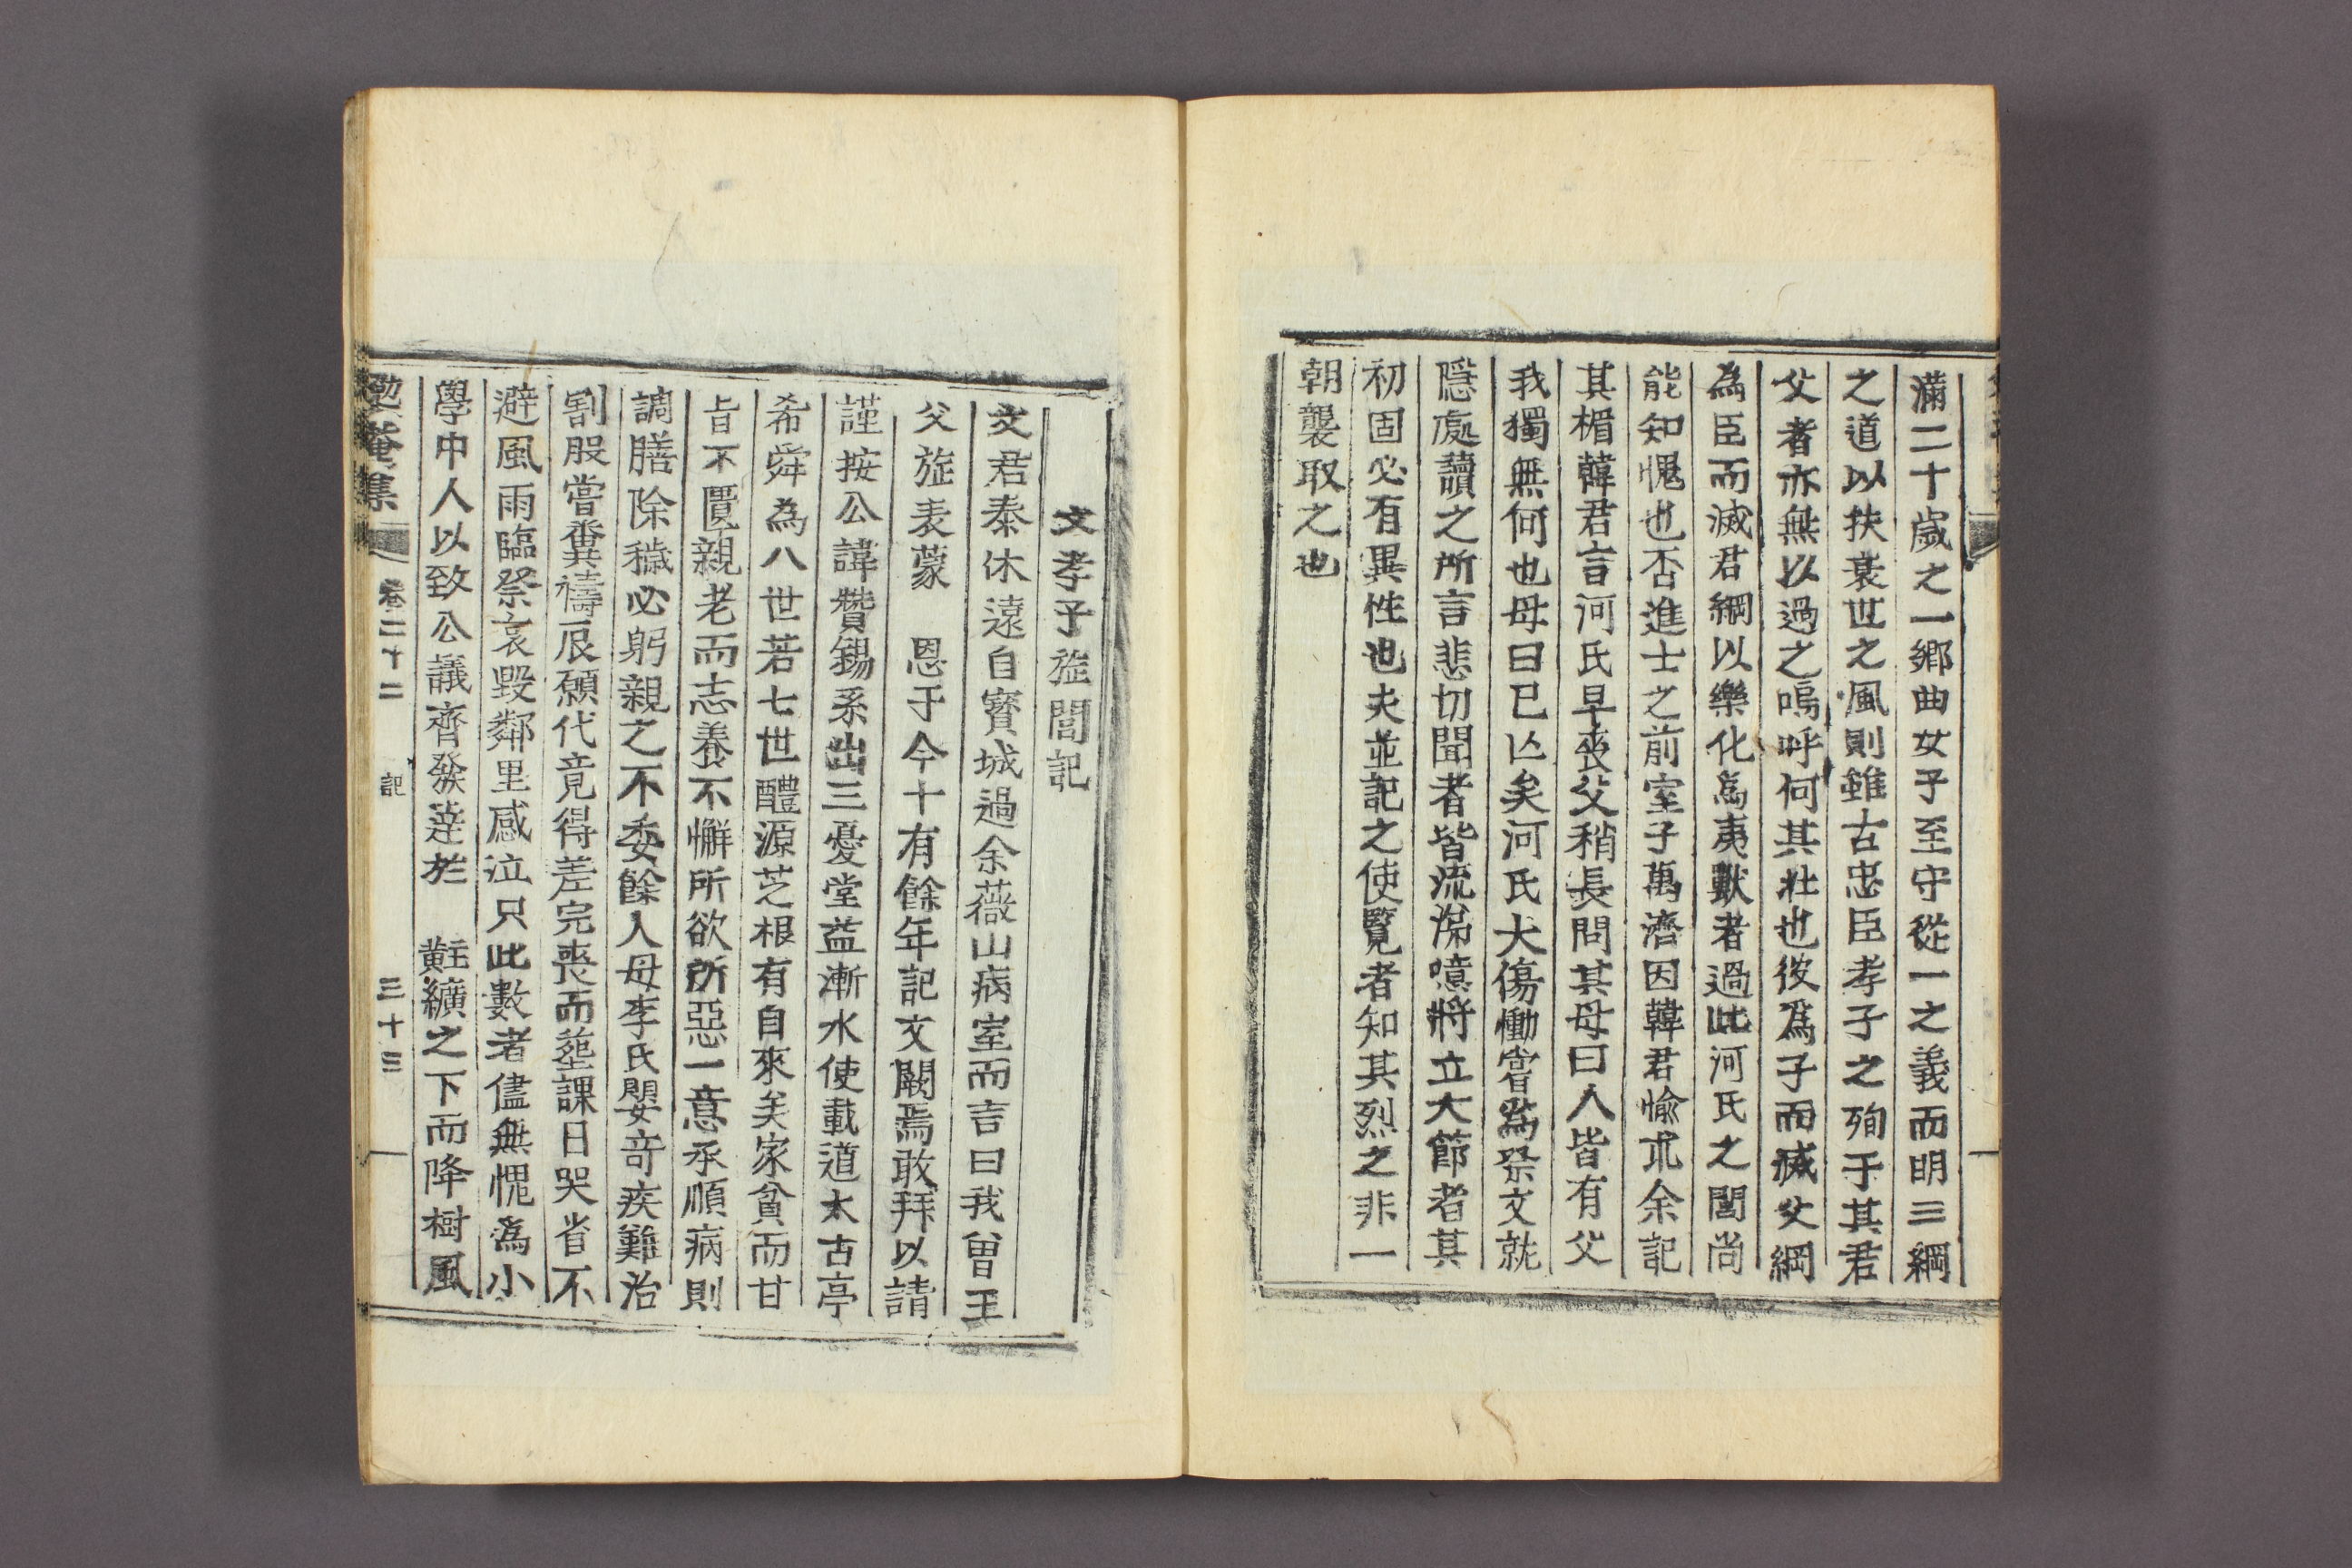 滿二十歲之一鄉曲女子至守從一之義而明三綱
之道以扶衰世之風則雖古忠臣孝子之殉于其君
父者亦無以過之嗚呼何其壯也彼爲子而滅父綱
為臣而滅君綱以樂化爲夷獸者過此河氏之閭尙
能知愧也否進士之前室子萬濟因韓君愉求余記
其楣韓君言河氏早喪父稍長問其母曰人皆有父
我獨無何也母曰已亾矣河氏大傷慟嘗爲祭文就
隱處讀之所言悲切聞者皆流涕噫將立大節者其
初固必有異性也夫並記之使覽者知其烈之非一
朝襲取之也
文孝子㫌閭記
文君泰休遠自寶城過余薇山病室而言曰我曾王
父㫌表蒙　恩于今十有餘年記文闕焉敢拜以請
謹按公諱贊錫系出三憂堂益漸水使載道太古亭
希舜為八世若七世醴源芝根有自來矣家貧而甘
旨不匱親老而志養不懈所欲所惡一意承順病則
調膳除穢必躬親之不委餘人母李氏嬰奇疾難治
割股嘗糞禱辰願代竟得差完喪而塟課日哭省不
避風雨臨祭哀毀鄰里感泣只此數者儘無愧爲小
學中人以致公議齊發達於　黈纊之下而降樹風
勉菴集　卷二十二　記　三十三